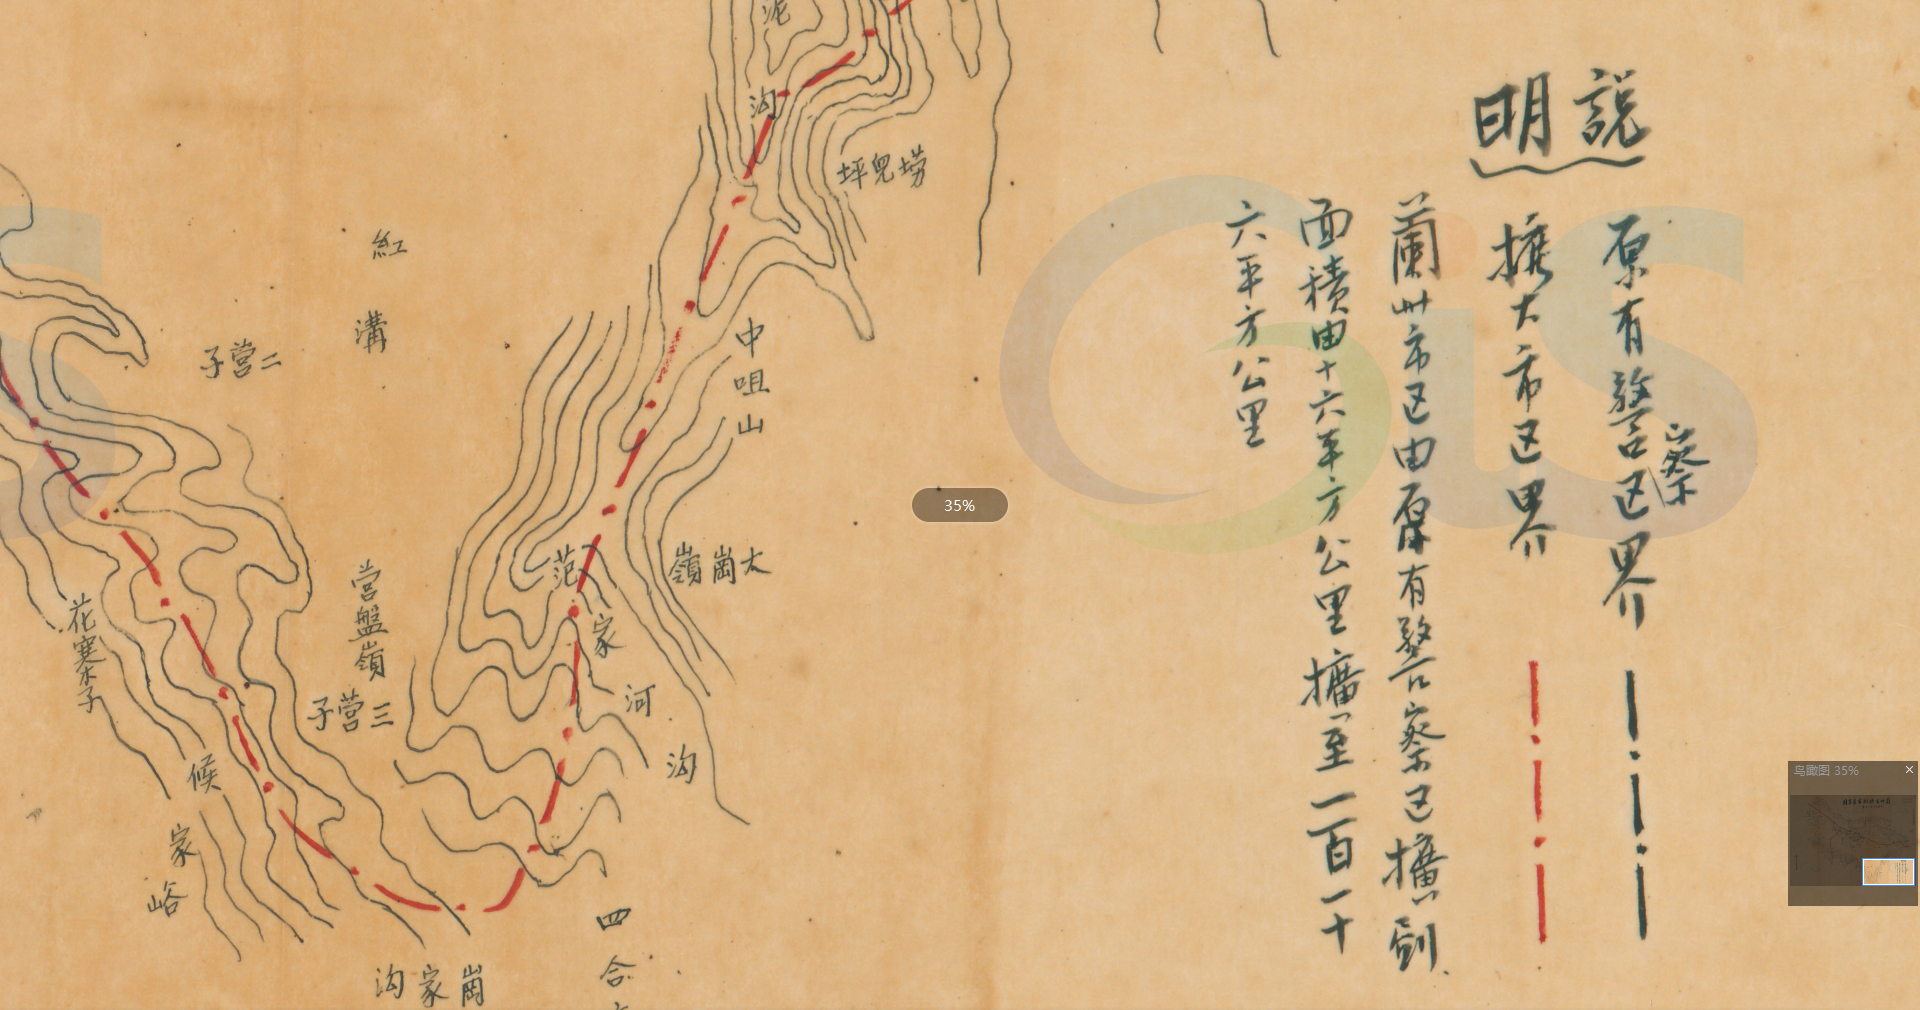 說明
原有警察区界
擴大市区界
蘭州市区由原有警察区擴劃
面積由十六平方公里擴至一百一十
六平方公里
泥沟
兒坪
中咀山
大崗嶺
范家河沟
四合
紅溝
二營子
營盤嶺
三營子
崗家沟
候家峪
花寨子
GIS
35%
鸟瞰图 35%